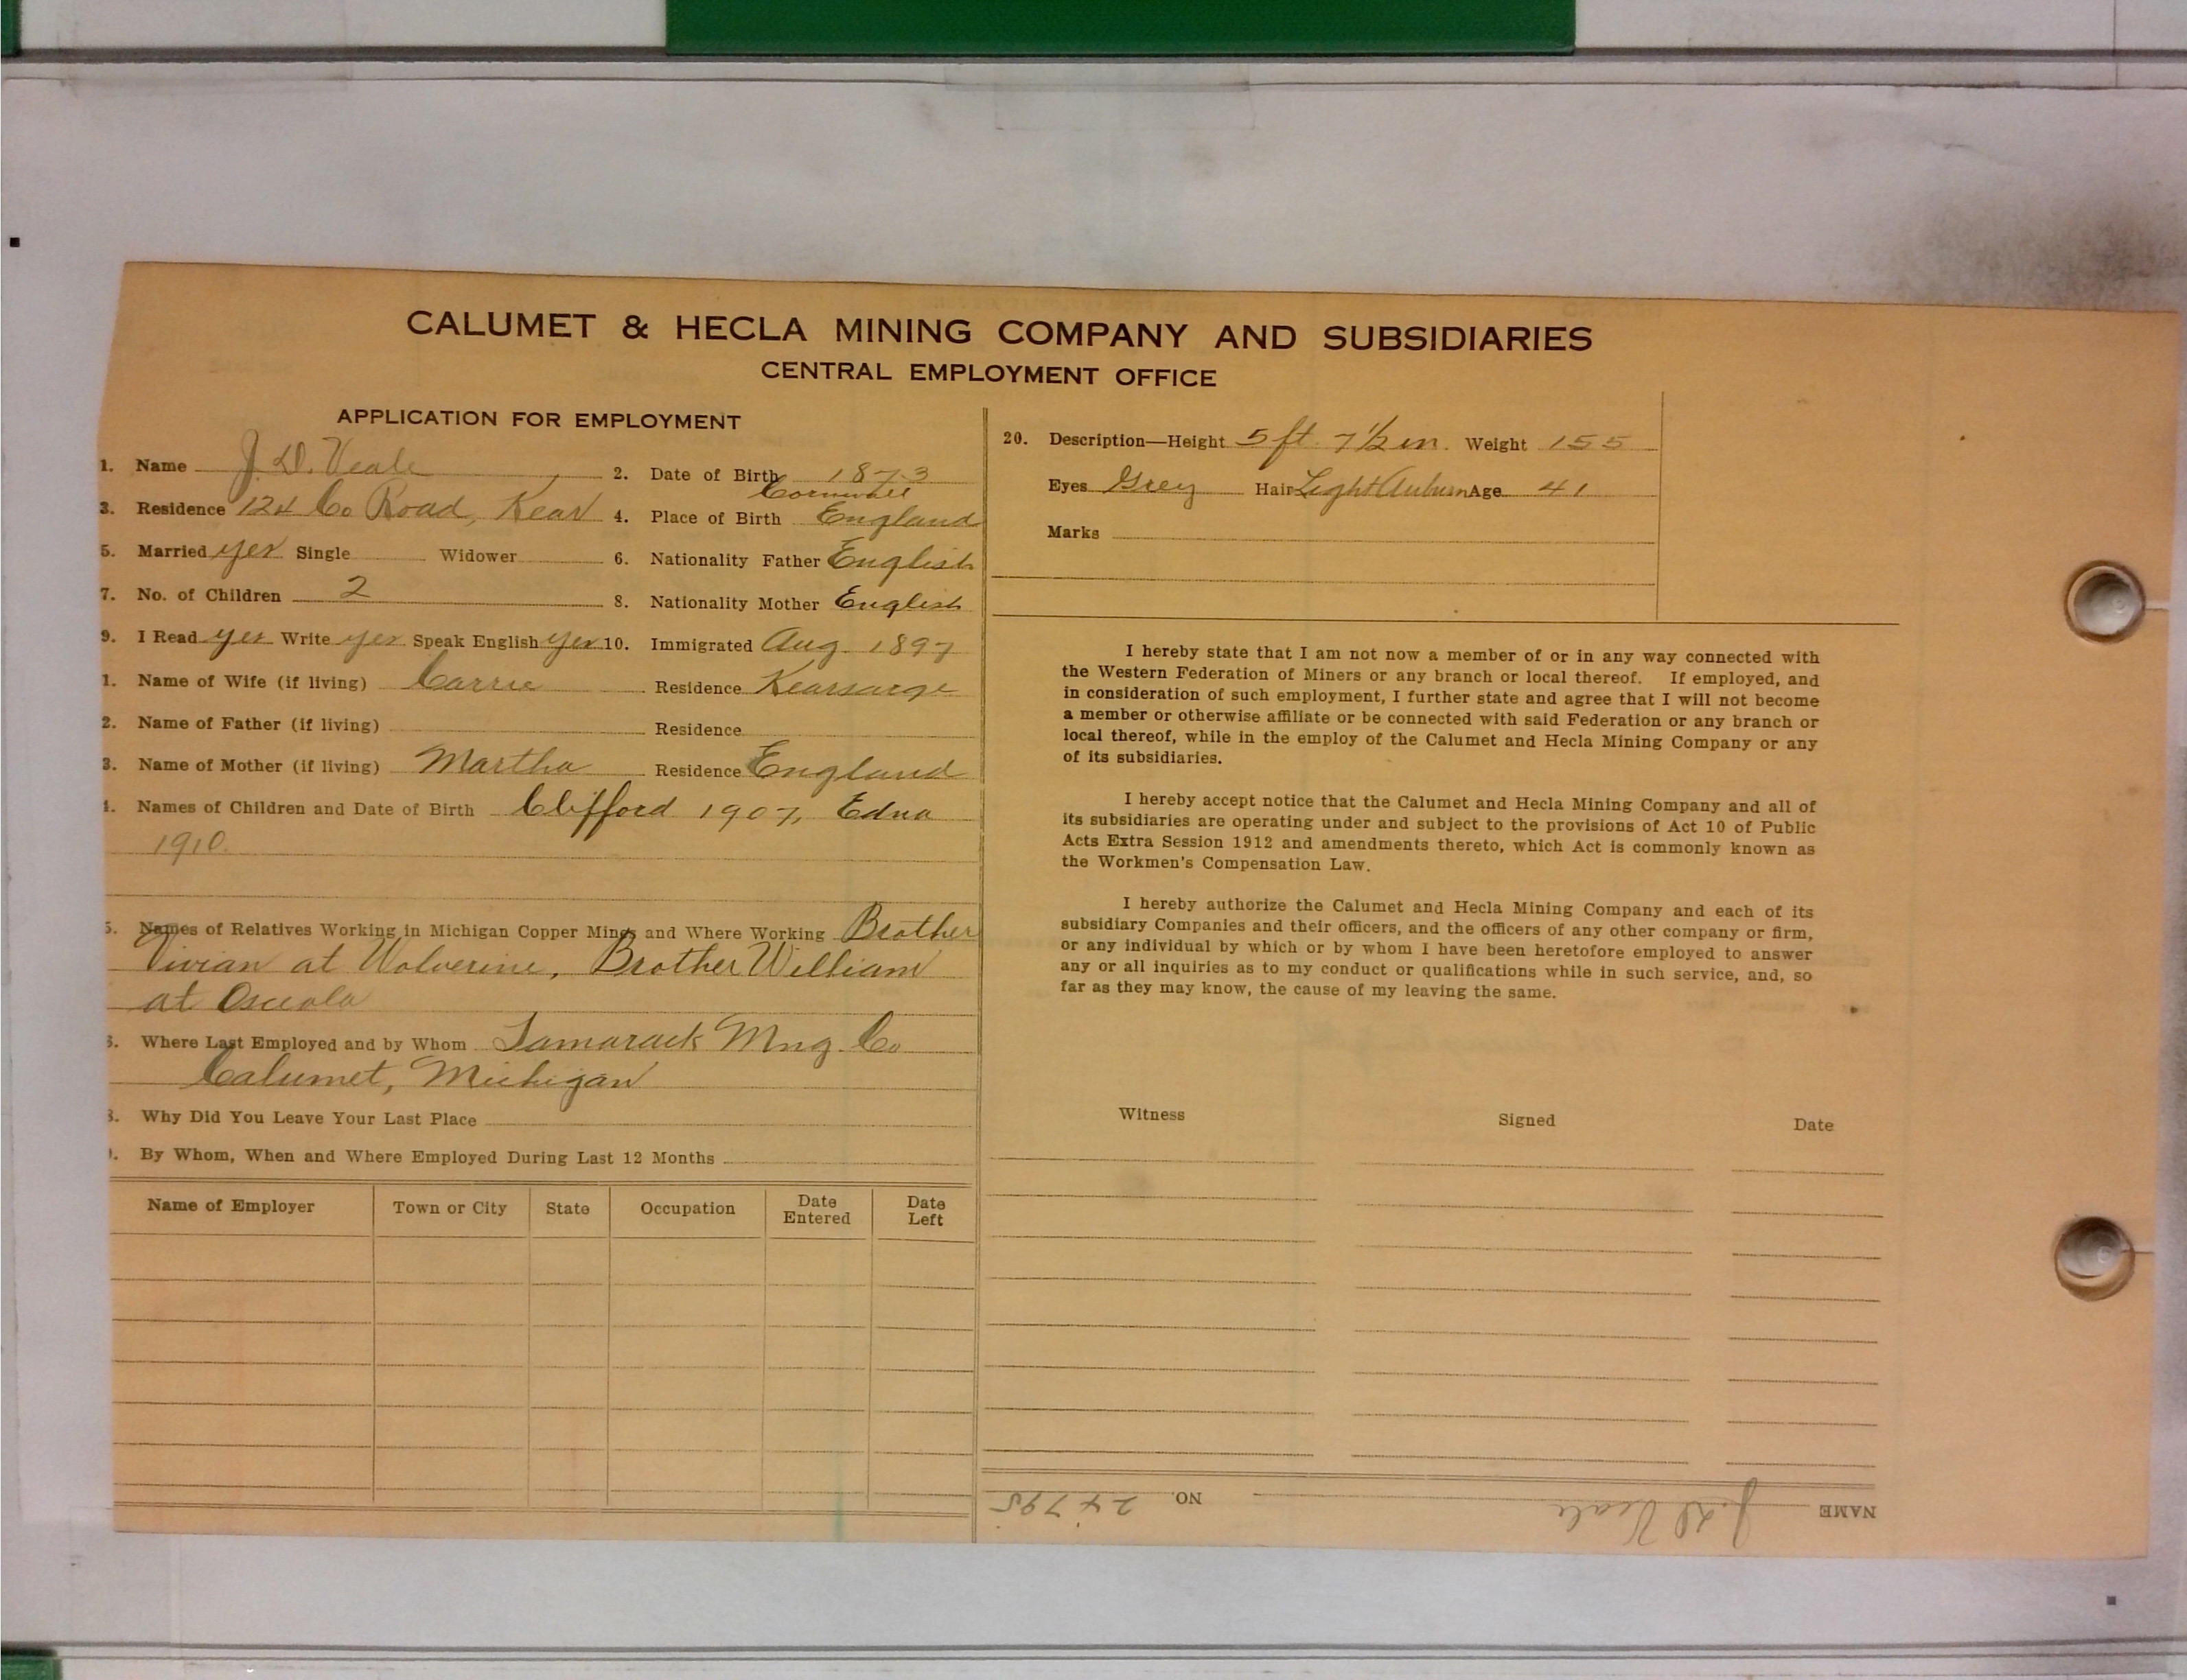 CALUMET & HECLA MINING COMPANY AND SUBSIDIARIES
CENTRAL EMPLOYMENT OFFICE
APPLICATION FOR EMPLOYMENT
1. Name J. D. Veale 2. Date of Birth 1873
3. Residence 124 Co Road, Kear 4. Place of Birth Cornwall England
5. Married yes Single Widower 6. Nationality Father English
7. No. of Children 2 8. Nationality Mother English
9. I Read yes Write yes Speak English yes 10. Immigrated Aug. 1897
1. Name of Wife (if living) Carrie Residence Kearsarge
2. Name of Father (if living) Residence
3. Name of Mother (if living) Martha Residence England
4. Names of Children and Date of Birth Clifford 1907, Edna
1910.
5. Names of Relatives Working in Michigan Copper Mines and Where Working Brother
Vivian at Wolverine, Brother William
at Osceola
6. Where Last Employed and by Whom Tamarack Mng. Co
Calumet, Michigan
8. Why Did You Leave Your Last Place
9. By Whom, When and Where Employed During Last 12 Months
Name of Employer Town or City State Occupation Date Entered Date Left
20. Description—Height 5 ft. 7 1/2 in. Weight 155
Eyes Grey Hair Light Auburn Age 41
Marks
I hereby state that I am not now a member of or in any way connected with
the Western Federation of Miners or any branch or local thereof. If employed, and
in consideration of such employment, I further state and agree that I will not become
a member or otherwise affiliate or be connected with said Federation or any branch or
local thereof, while in the employ of the Calumet and Hecla Mining Company or any
of its subsidiaries.
I hereby accept notice that the Calumet and Hecla Mining Company and all of
its subsidiaries are operating under and subject to the provisions of Act 10 of Public
Acts Extra Session 1912 and amendments thereto, which Act is commonly known as
the Workmen's Compensation Law.
I hereby authorize the Calumet and Hecla Mining Company and each of its
subsidiary Companies and their officers, and the officers of any other company or firm,
or any individual by which or by whom I have been heretofore employed to answer
any or all inquiries as to my conduct or qualifications while in such service, and, so
far as they may know, the cause of my leaving the same.
Witness Signed Date
NAME J. D. Veale NO. 24795